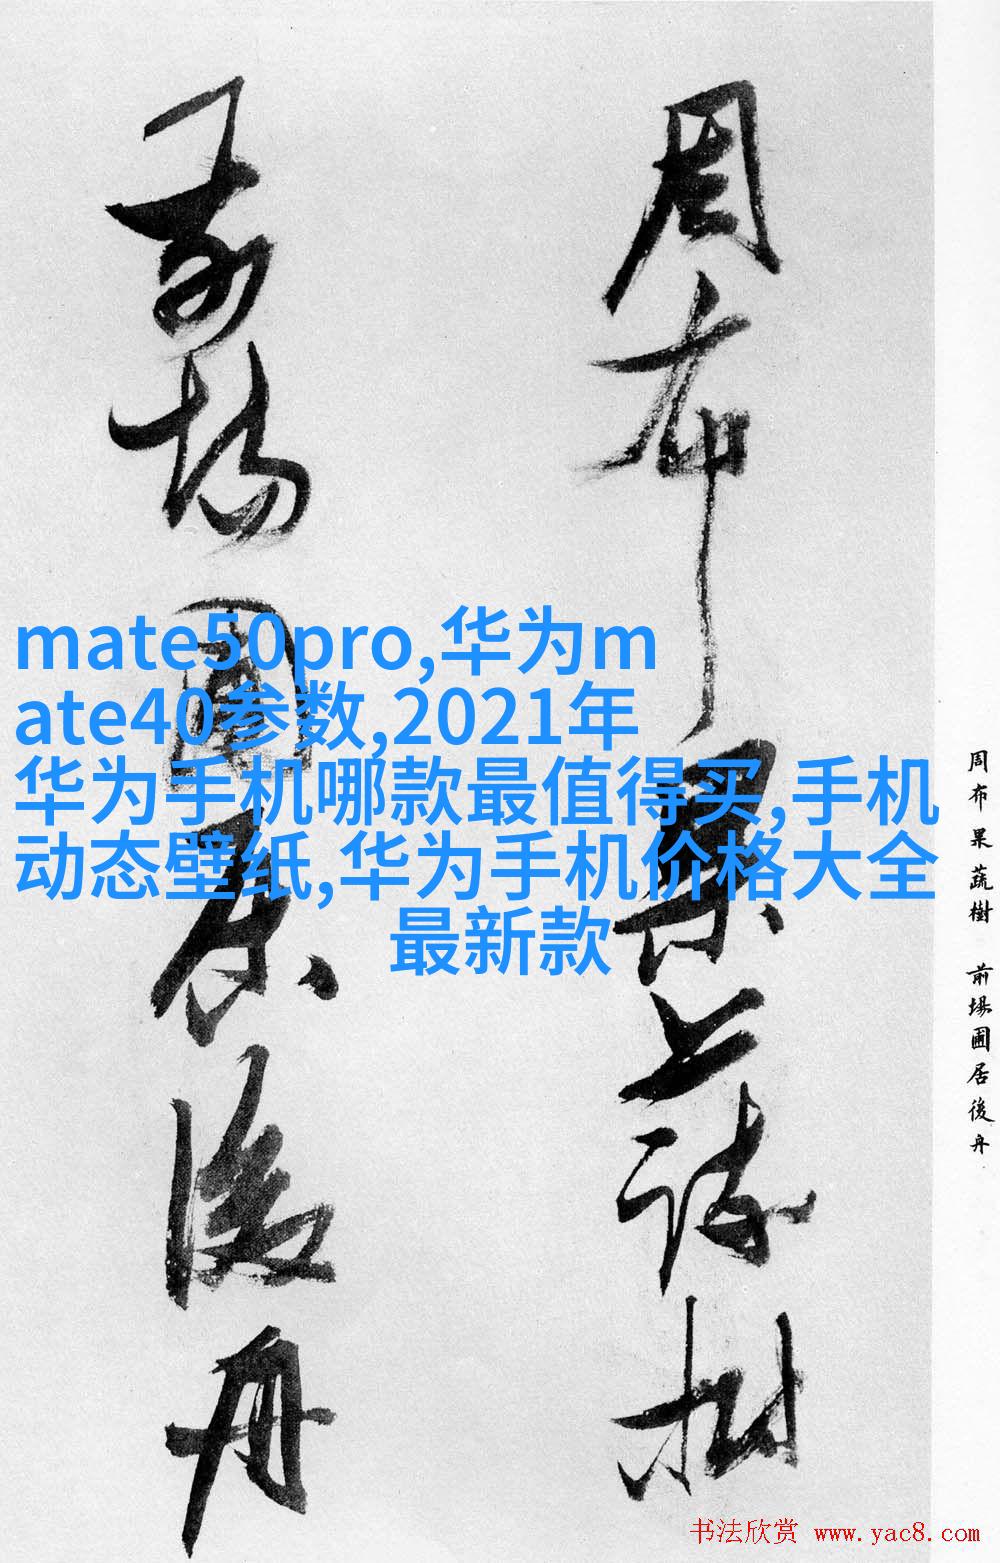 周布果蔬樹
前場圃居後舟
mate50pro,华为m
ate40参数,2021年
华为手机哪款最值得买,手机
动态壁纸,华为手机价格大全
最新款
周布果蔬樹 前場圃居後舟
书法欣赏 www.yac8.com